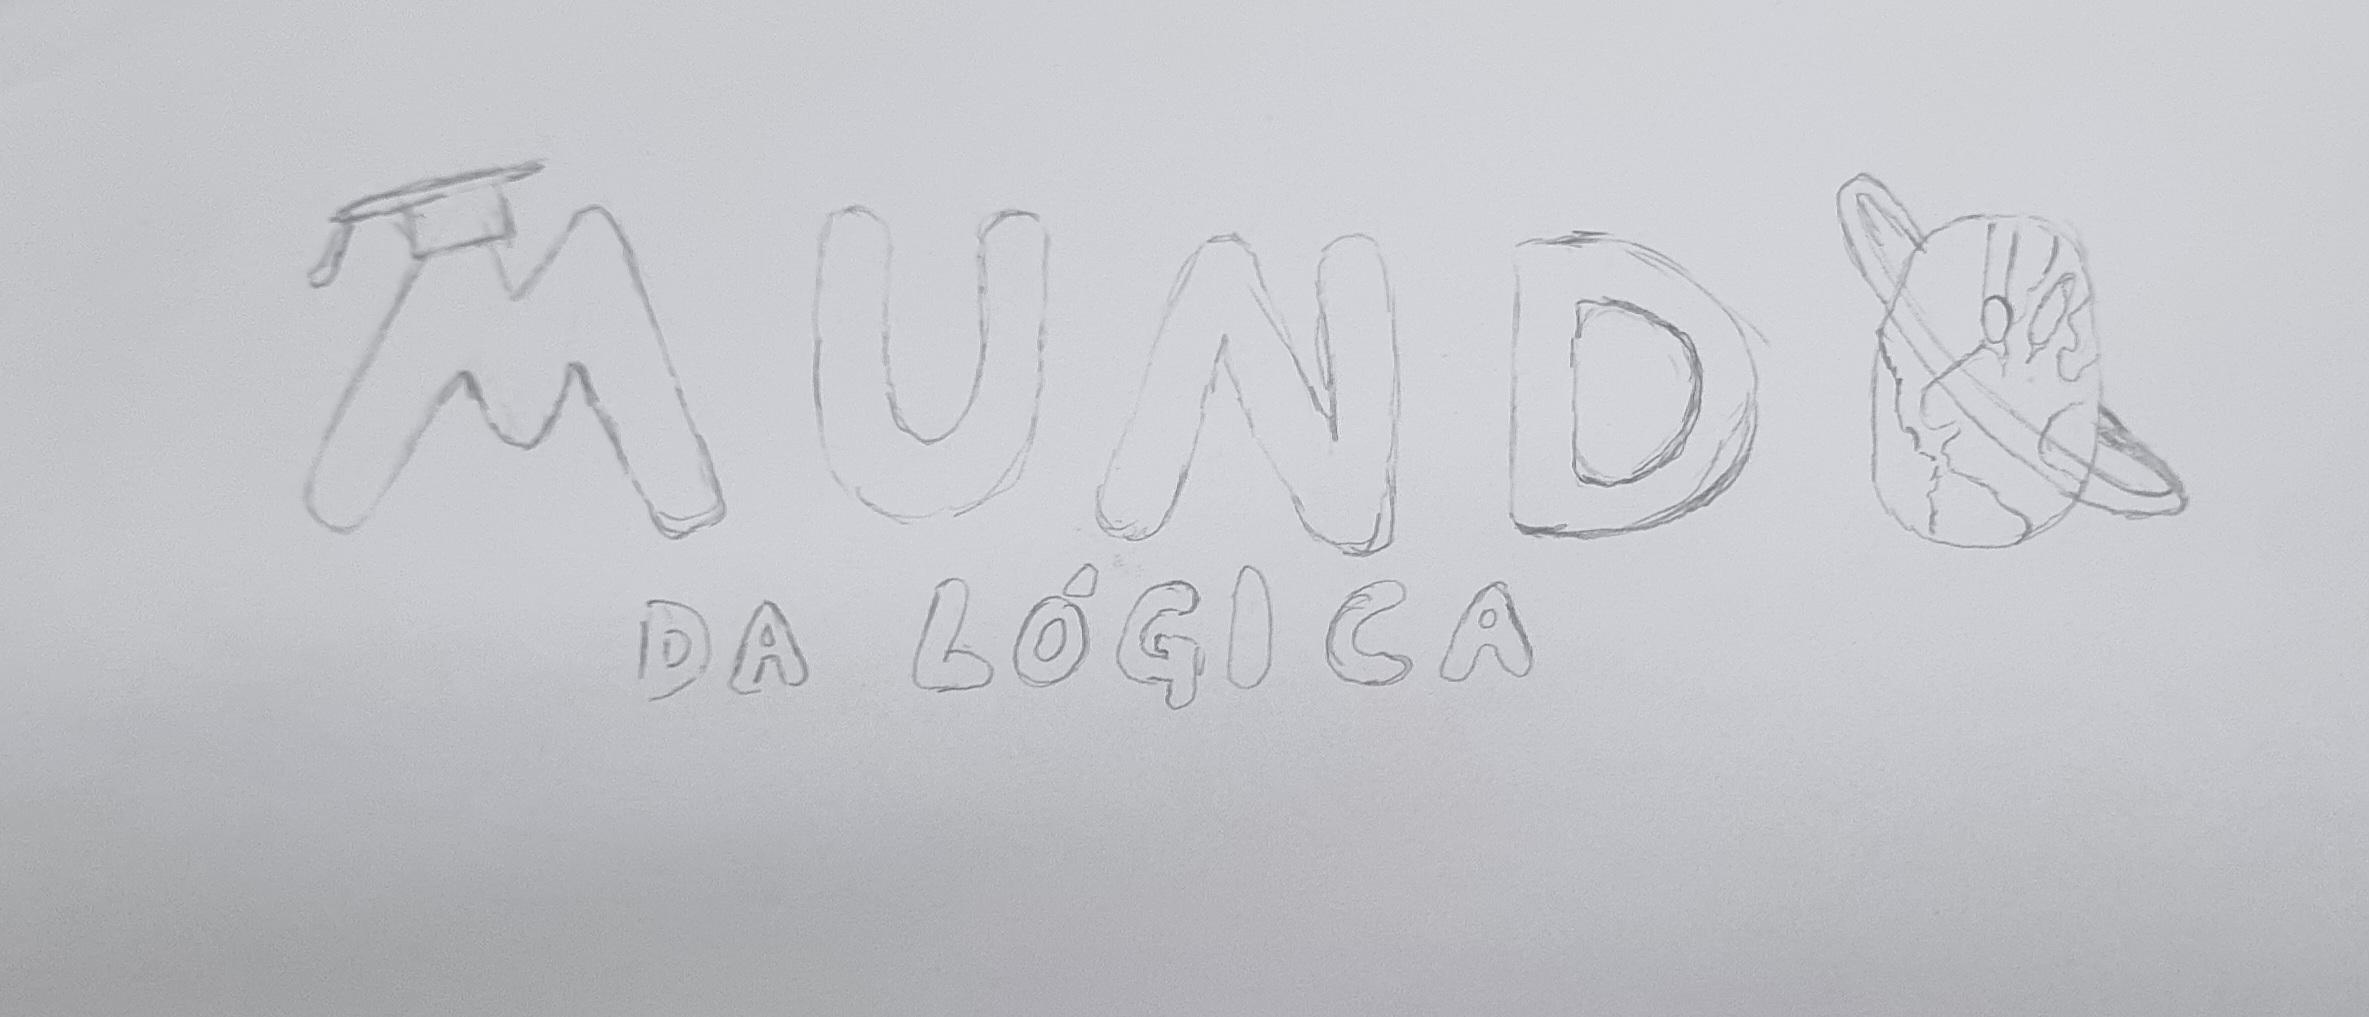 MUNDO
DA LÓGICA